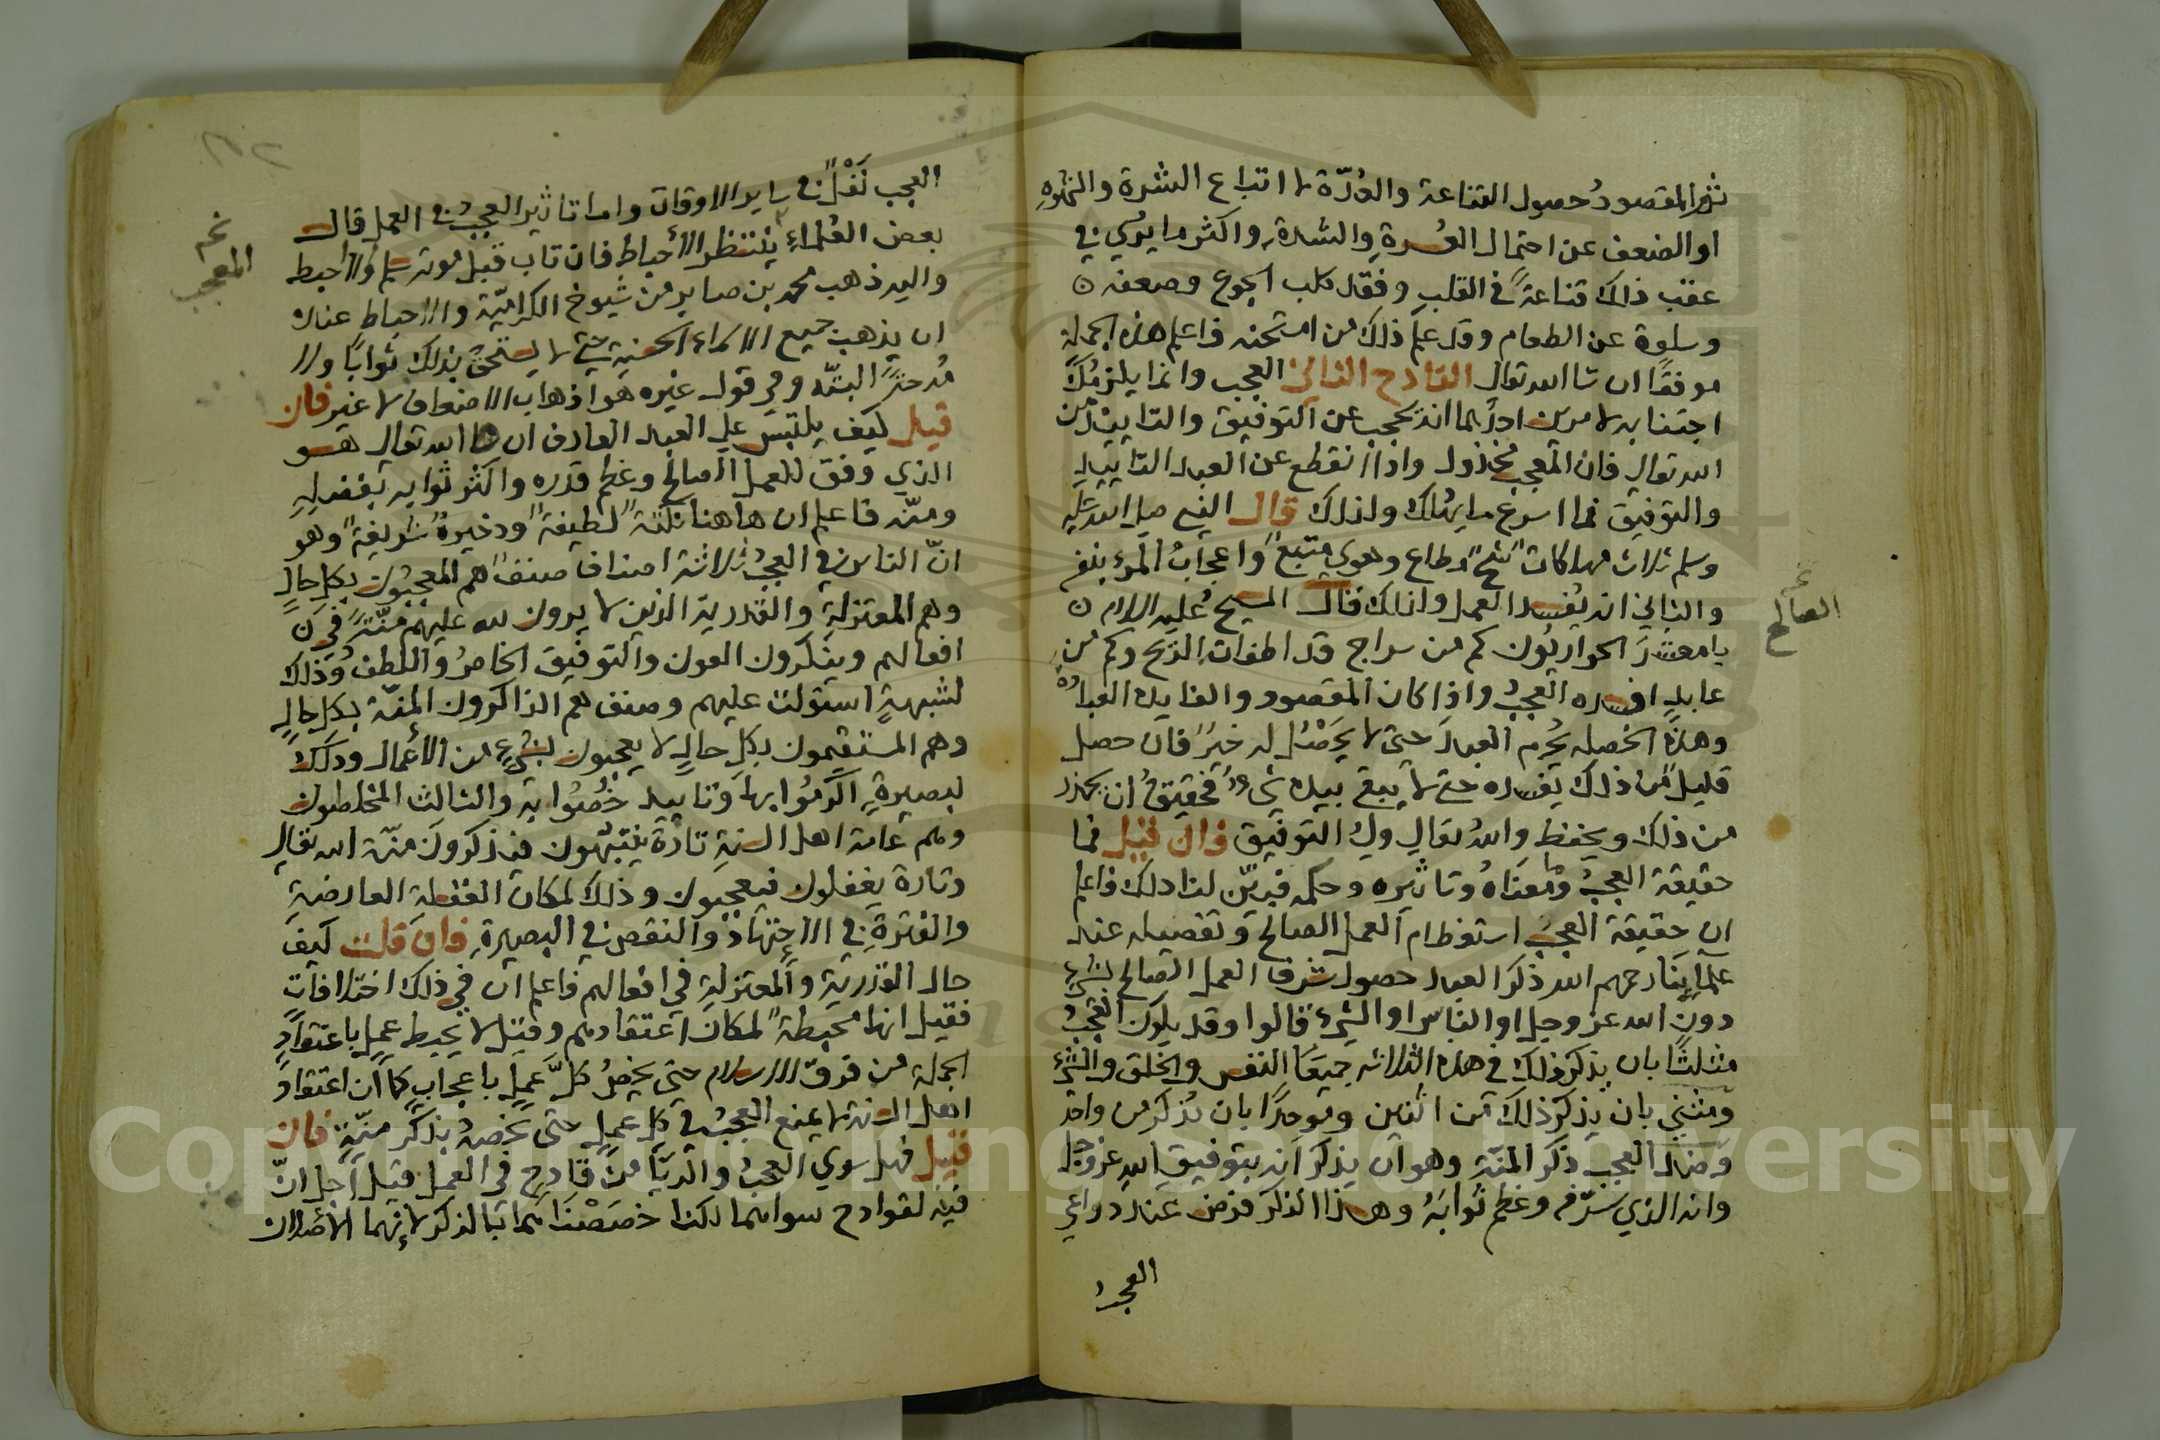 ثم المقصود حصول القناعة والعدة لا اتباع الشرة والنهمة
او الضعف عن احتمال العسرة والشدة واكثر ما يري في
عقب ذلك قناعة في القلب وفقد كلب الجوع وضعفه
وسلوة عن الطعام وقد علم ذلك من امتحنه فاعلم هذه الجملة
موفقا ان شا الله تعالى القادح الثاني العجب وانما يلزمك
اجتنابه لامرين احدهما انه يحجب عن التوفيق والتاييد من
الله تعالي فان المعجب مخذول واذا انقطع عن العبد التاييد
والتوفيق فما اسرع ما يهلك ولذلك قال النبي صلى الله عليه
وسلم ثلاث مهلكات شح مطاع وهوي متبع واعجاب المرء بنفسه
والثاني انه يفسد العمل ولذلك قال المسيح عليه السلام
يا معشر الحواريون كم من سراج قد اطفات الريح وكم من
عابد افسده العجب واذا كان المقصود والفايدة العبادة
وهذه الخصلة تحرم العبد حتى لا يحصل له خير فان حصل
قليل من ذلك يفسده حتى لا يبقى بيده شيء فحقيق ان يحذر
من ذلك ويحفظ والله تعالي ولي التوفيق فان قيل فما
حقيقة العجب وما معناه وتاثيره وحكمه فبين لنا ذلك فاعلم
ان حقيقة العجب استعظام العمل الصالح وتفصيله عند
علمائنا رحمهم الله ذكر العبد حصول شرف العمل الصالح بشيء
دون الله عز وجل او الناس او الشيء قالوا وقد يكون العجب
مثلثا بان يذكر ذلك في هذه الثلاثة جميعا النفس والخلق والشيء
ومثنى بان يذكر ذلك من اثنين وموحدا بان يذكر من واحد
وضد العجب ذكر المنة وهو ان يذكر انه بتوفيق الله عز وجل
وانه الذي شرفه وعظم ثوابه وهذا الذكر فرض عند دواعي
العجب
الصالح
العجب نفل في ساير الاوقات واما تاثير العجب في العمل قال
بعض العلماء ينتظر الاحباط فان تاب قبل موته سلم والا حبط
واليه ذهب محمد بن صابر من شيوخ الكرامية والاحباط عنده
ان يذهب جميع الاسماء الحسنة حتى لا يستحق بذلك ثوابا ولا
مدحة البتة وفي قول غيره هو اذهاب الاضعاف لا غير فان
قيل كيف يلتبس علي العبد العارف ان الله تعالى هو
الذي وفق للعمل الصالح وعظم قدره واكثر ثوابه بفضله
ومنه فاعلم ان هاهنا نكتة لطيفة وذخيرة شريفة وهو
ان الناس في العجب ثلاثة اصناف صنف هم المعجبون بكل حال
وهم المعتزلة والقدرية الذين لا يرون لله عليهم منة في
افعالهم وينكرون العون والتوفيق الخاص واللطف وذلك
لشبهة استولت عليهم وصنف هم الذاكرون المنة بكل حال
وهم المستقيمون بكل حال لا يعجبون بشيء من الأعمال وذلك
لبصيرة اكرموا بها وتاييد خصوا به والثالث المخلطون
وهم عامة اهل السنة تارة ينتبهون فيذكرون منة الله تعالى
وتارة يغفلون فيعجبون وذلك لمكان الغفلة العارضة
والفترة في الاجتهاد والنقص في البصيرة فان قلت كيف
حال القدرية والمعتزلة في افعالهم فاعلم ان في ذلك اختلافات
فقيل انها محبطة لمكان اعتقادهم وقيل لا يحبط عمل باعتقاد
الجملة من فرق الاسلام حتى يخص كل عمل باعجاب كما ان اعتقاد
اهل السنة لا يمنع العجب في كل عمل حتى يخصه بذكر منة فان
قيل فهل سوي العجب والريا من قادح في العمل قيل اجل ان
فيه لقوادح سواهما لكنا خصصناهما بالذكر لانهما الأصلان
المعجب
Copyright © King Saud University